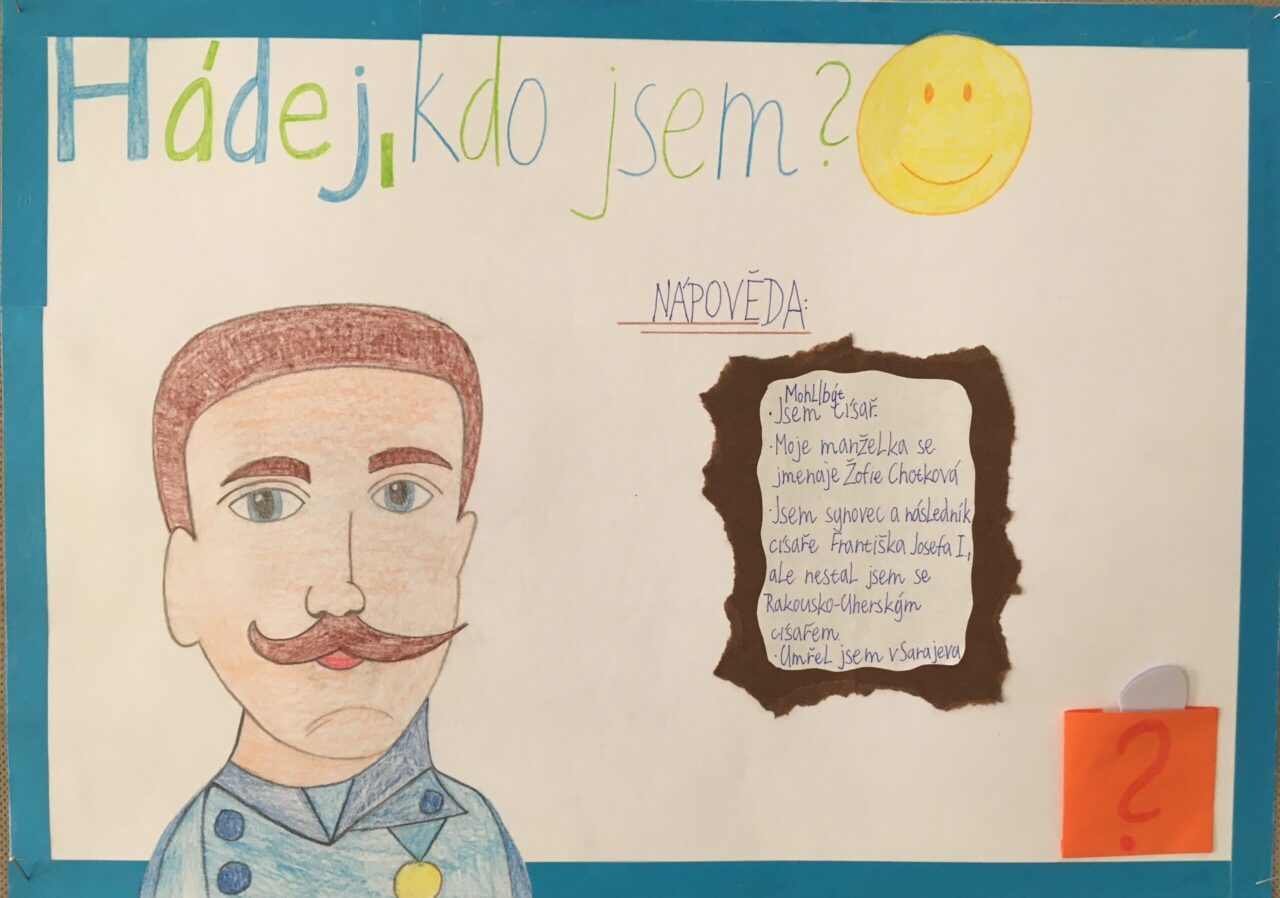 Hádej, kdo jsem?
NÁPOVĚDA:
Mohl být
· Jsem císař.
· Moje manželka se
jmenaje Žofie Chotková
· Jsem synovec a následník
císaře Františka Josefa I.,
ale nestal jsem se
Rakousko-Uherským
císařem.
· Umřel jsem v Sarajeva
?